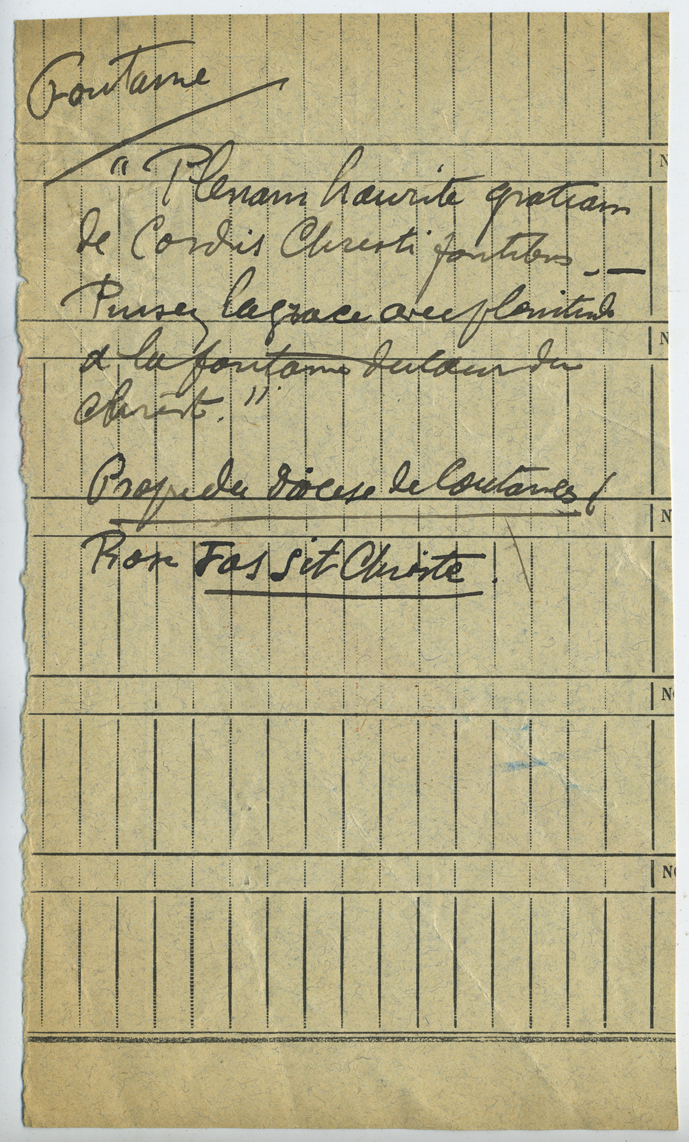 Fontaine
" Plenam haurite gratiam
de Cordis Christi fontibus _ —
Puisez la grace avec plenitude
a la fontaine du Cœur du
Christ. "
Propre du Diocese de Coutances (
Prose Fas sit Christe .
N
N
N
NO
NO